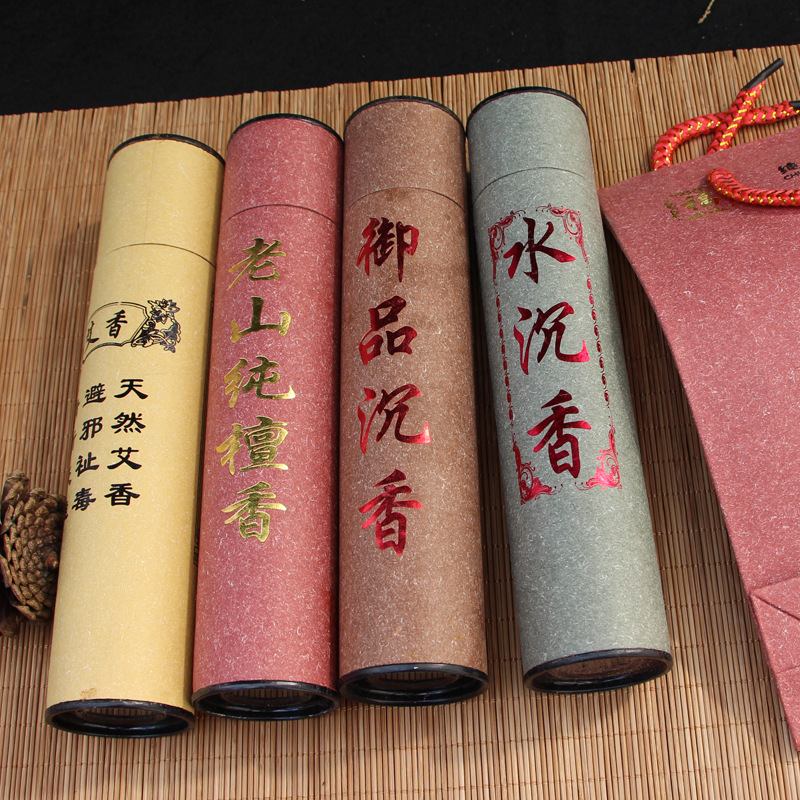 香
天然艾香
避邪祉毒
老山纯檀香
御品沉香
水沉香